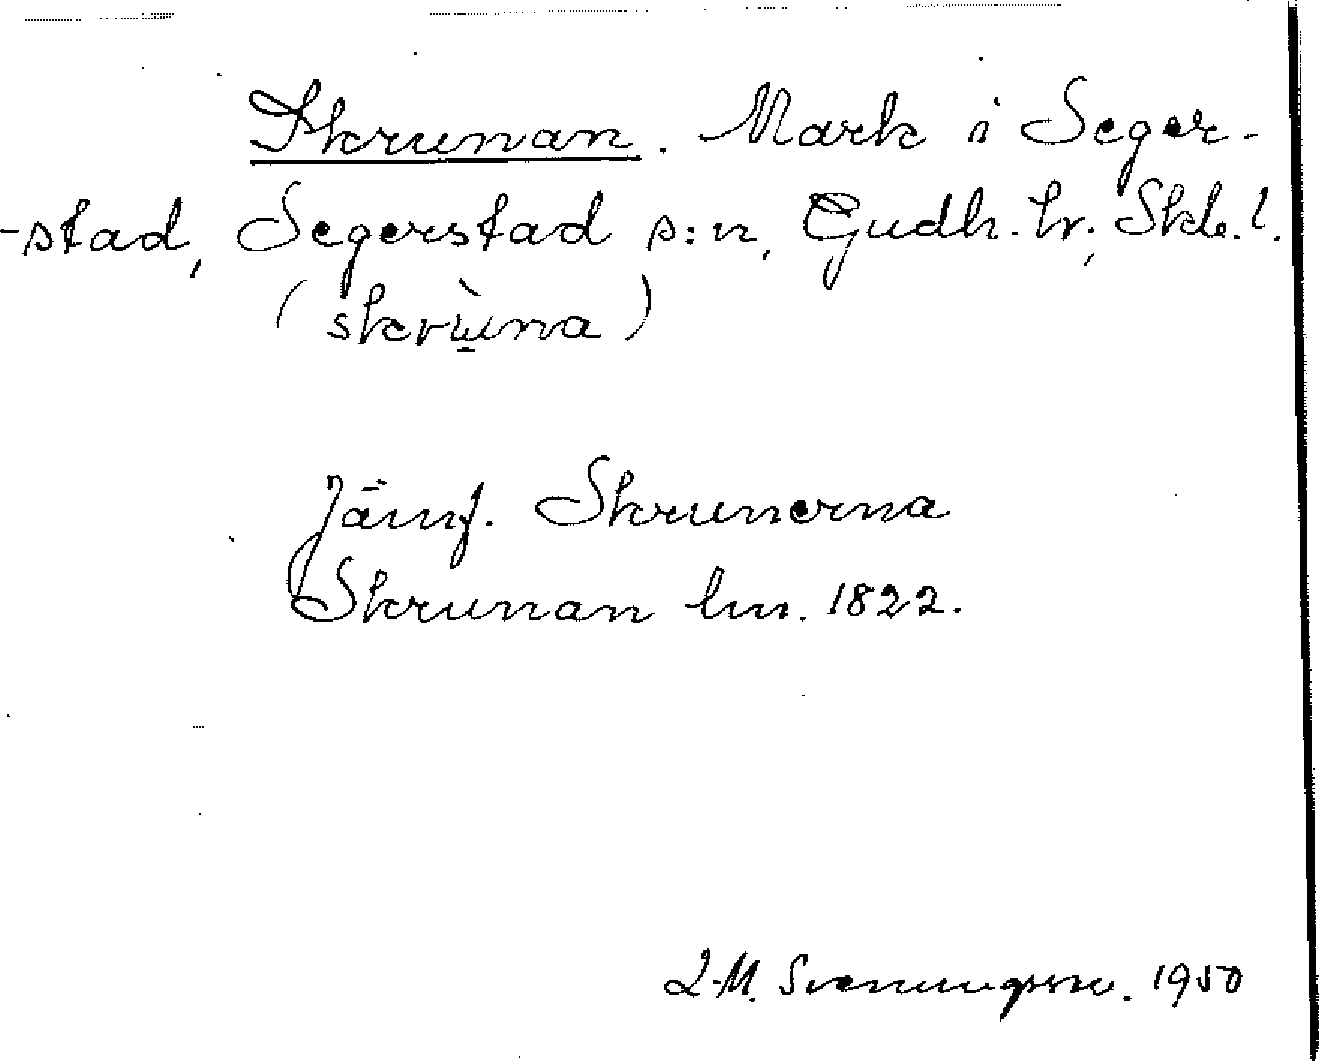 Skrunan. Mark i Seger-
-stad, Segerstad s:n, Gudh. hr., Skb. l.
(skrùna)
Jämf. Skrunerna
Skrunan lm. 1822.
L-M. Svenungsson. 1950